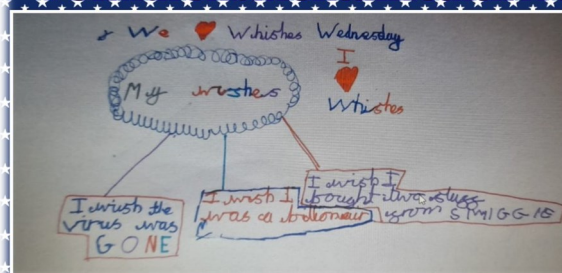 & We ❤ Whishes Wednesday
I
❤
Whishes
My wishes
I wish the
virus was
GONE
I wish I
was a
I wish I
bought
from SMIGGLE